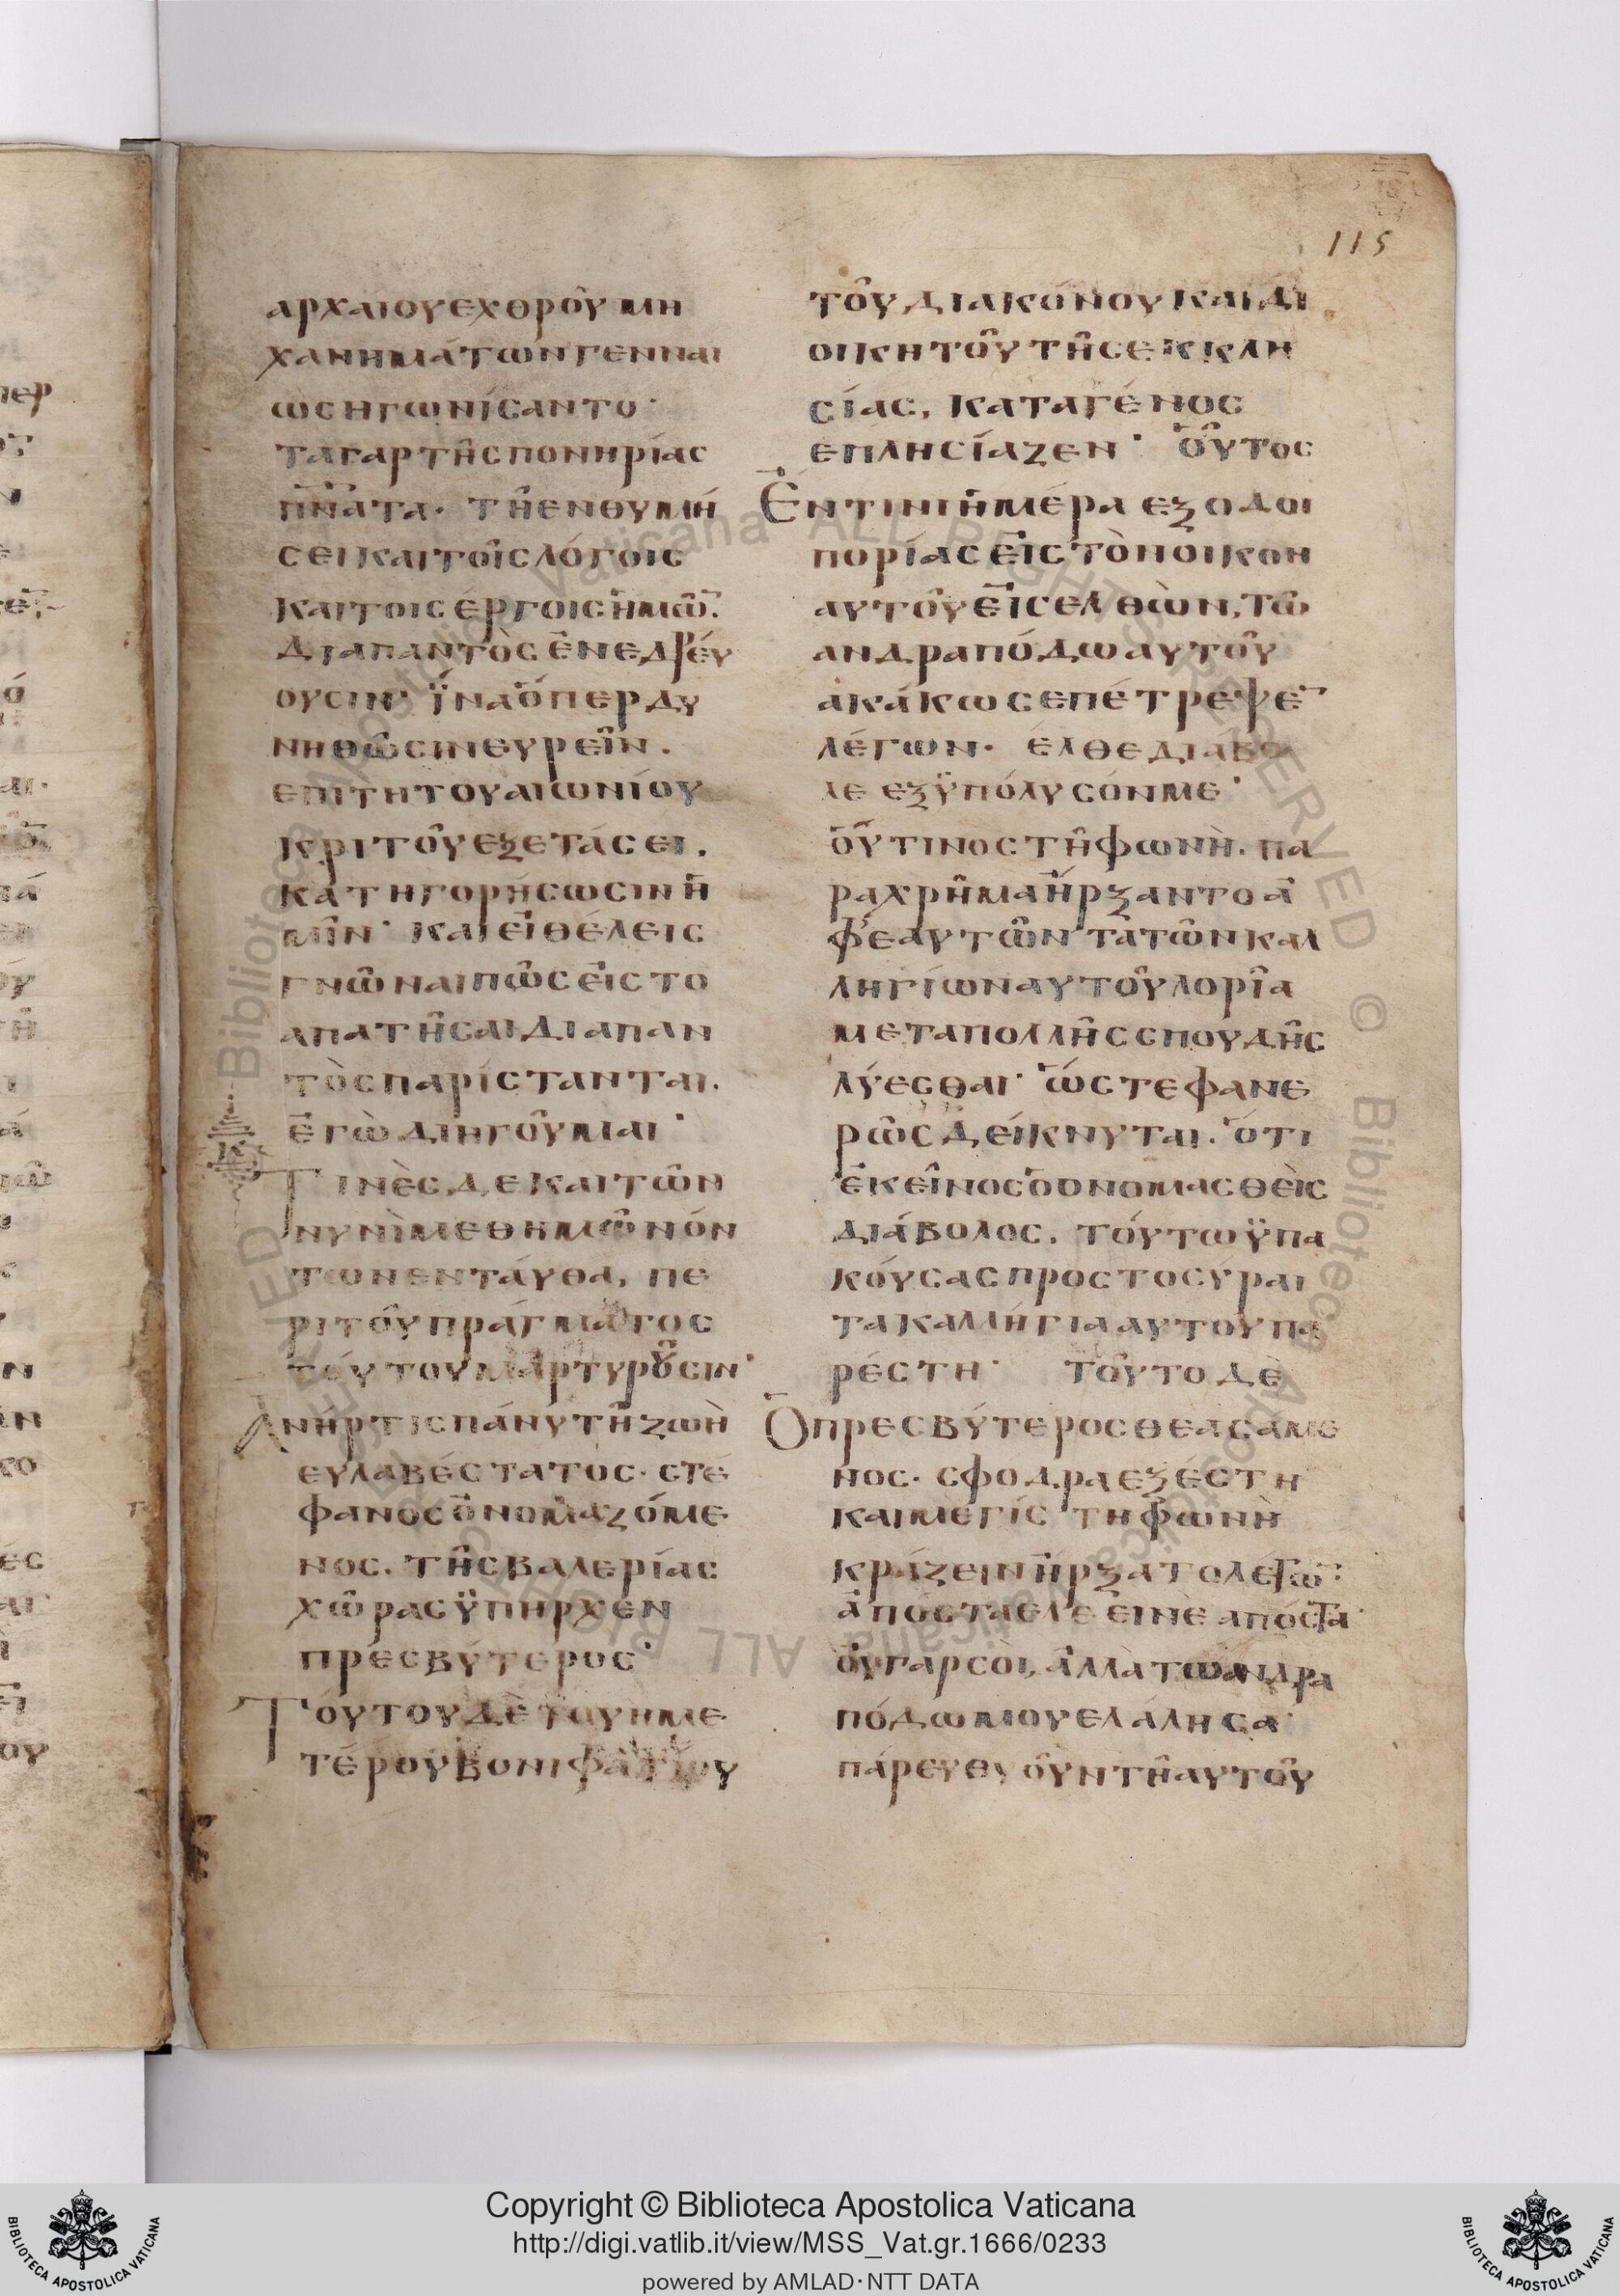 115
αρχαίουεχθροῦμη
χανημάτωνγενναι
ωςηγωνίσαντο·
ταγαρτῆςπονηρίας
πν̅ατα· τῆενθυμή
σεικαιτοῖςλόγοις
καιτοιςέργοιςἡμῶ̅.
διαπαντὸςἐνεδρεύ
ουσιν· ϊναὅπερδυ
νηθῶσινευρεῖν.
επιτητουαιωνίου
κριτοῦεξετάσει.
κατηγορήσωσινἡ
μῖν· καιεἰθέλεις
γνῶναιπῶςεἰςτο
απατῆσαιδιαπαν
τὸςπαρίστανται.
ἐγὼδιηγοῦμαι·
Τινὲςδεκαιτῶν
νυνὶμεθημῶνόν
τωνεντάυθα, πε
ριτοῦπράγματος
τούτουμαρτυροῦσιν·
Ανήρτιςπάνυτῆζωὴ
ευλαβέστατος· στέ
φανοςὀνομαζόμε
νος. τῆςβαλερίας
χῶραςϋπῆρχεν
πρεσβύτερος·
Τούτουδὲτουημε
τέρουβονιφατίου
τοῦδιακόνουκαιδι
οικητοῦτῆςεκκλη
σίας, καταγένος
επλησίαζεν· οὗτος
Ἐντινιἡμέραεξοδοι
πορίαςεἰςτὸνοίκον
αυτοῦεἰσελθὼν,τῶ
ανδραπόδωαυτοῦ
ἀκάκωςεπέτρεψε̅
λέγων· ελθεδιάβο
λε εξϋπόλυσόνμε·
οὗτινοςτῆφωνὴ. πα
ραχρῆμαἤρξαντοἀ
φ'εαυτῶντὰτῶνκαλ
ληγίωναυτοῦλορῖα
μεταπολλῆςσπουδῆς
λύεσθαι· ὥστεφανε
ρῶςδείκνυται. ὅτι
ἐκεῖνοςὁονομασθεὶς
διάβολος. τούτωϋπα
κούσαςπροςτοσυραι
τακαλλήγιααυτουπα
ρέστη· τοῦτοδὲ
Ὁπρεσβύτεροςθεασάμε
νος. σφοδραεξέστη
καιμεγίστηφωνὴ
κράζεινἤρξατολέγω̅·
ἀπόσταελεεινὲαπόστα·
οὐγαρσὸι, ἀλλὰτωανδρα
πόδωμουελάλησα·
πάρευθυοῦντῆαυτοῦ
Copyright © Biblioteca Apostolica Vaticana
http://digi.vatlib.it/view/MSS_Vat.gr.1666/0233
powered by AMLAD·NTT DATA
BIBLIOTECA APOSTOLICA VATICANA
BIBLIOTECA APOSTOLICA VATICANA